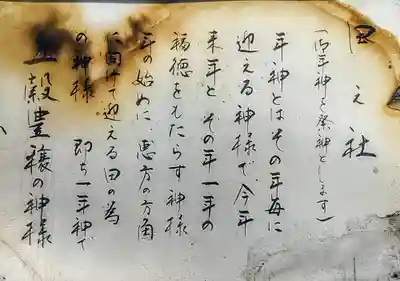 田え社
(御年神を祭神とします)
年神とはその年毎に
迎える神様で、今年
来年と、その年一年の
福徳をもたらす神様
年の始めに 恵方の方角
に向けて迎える田の為
の神様 即ち一年神で
五穀豊穣の神様